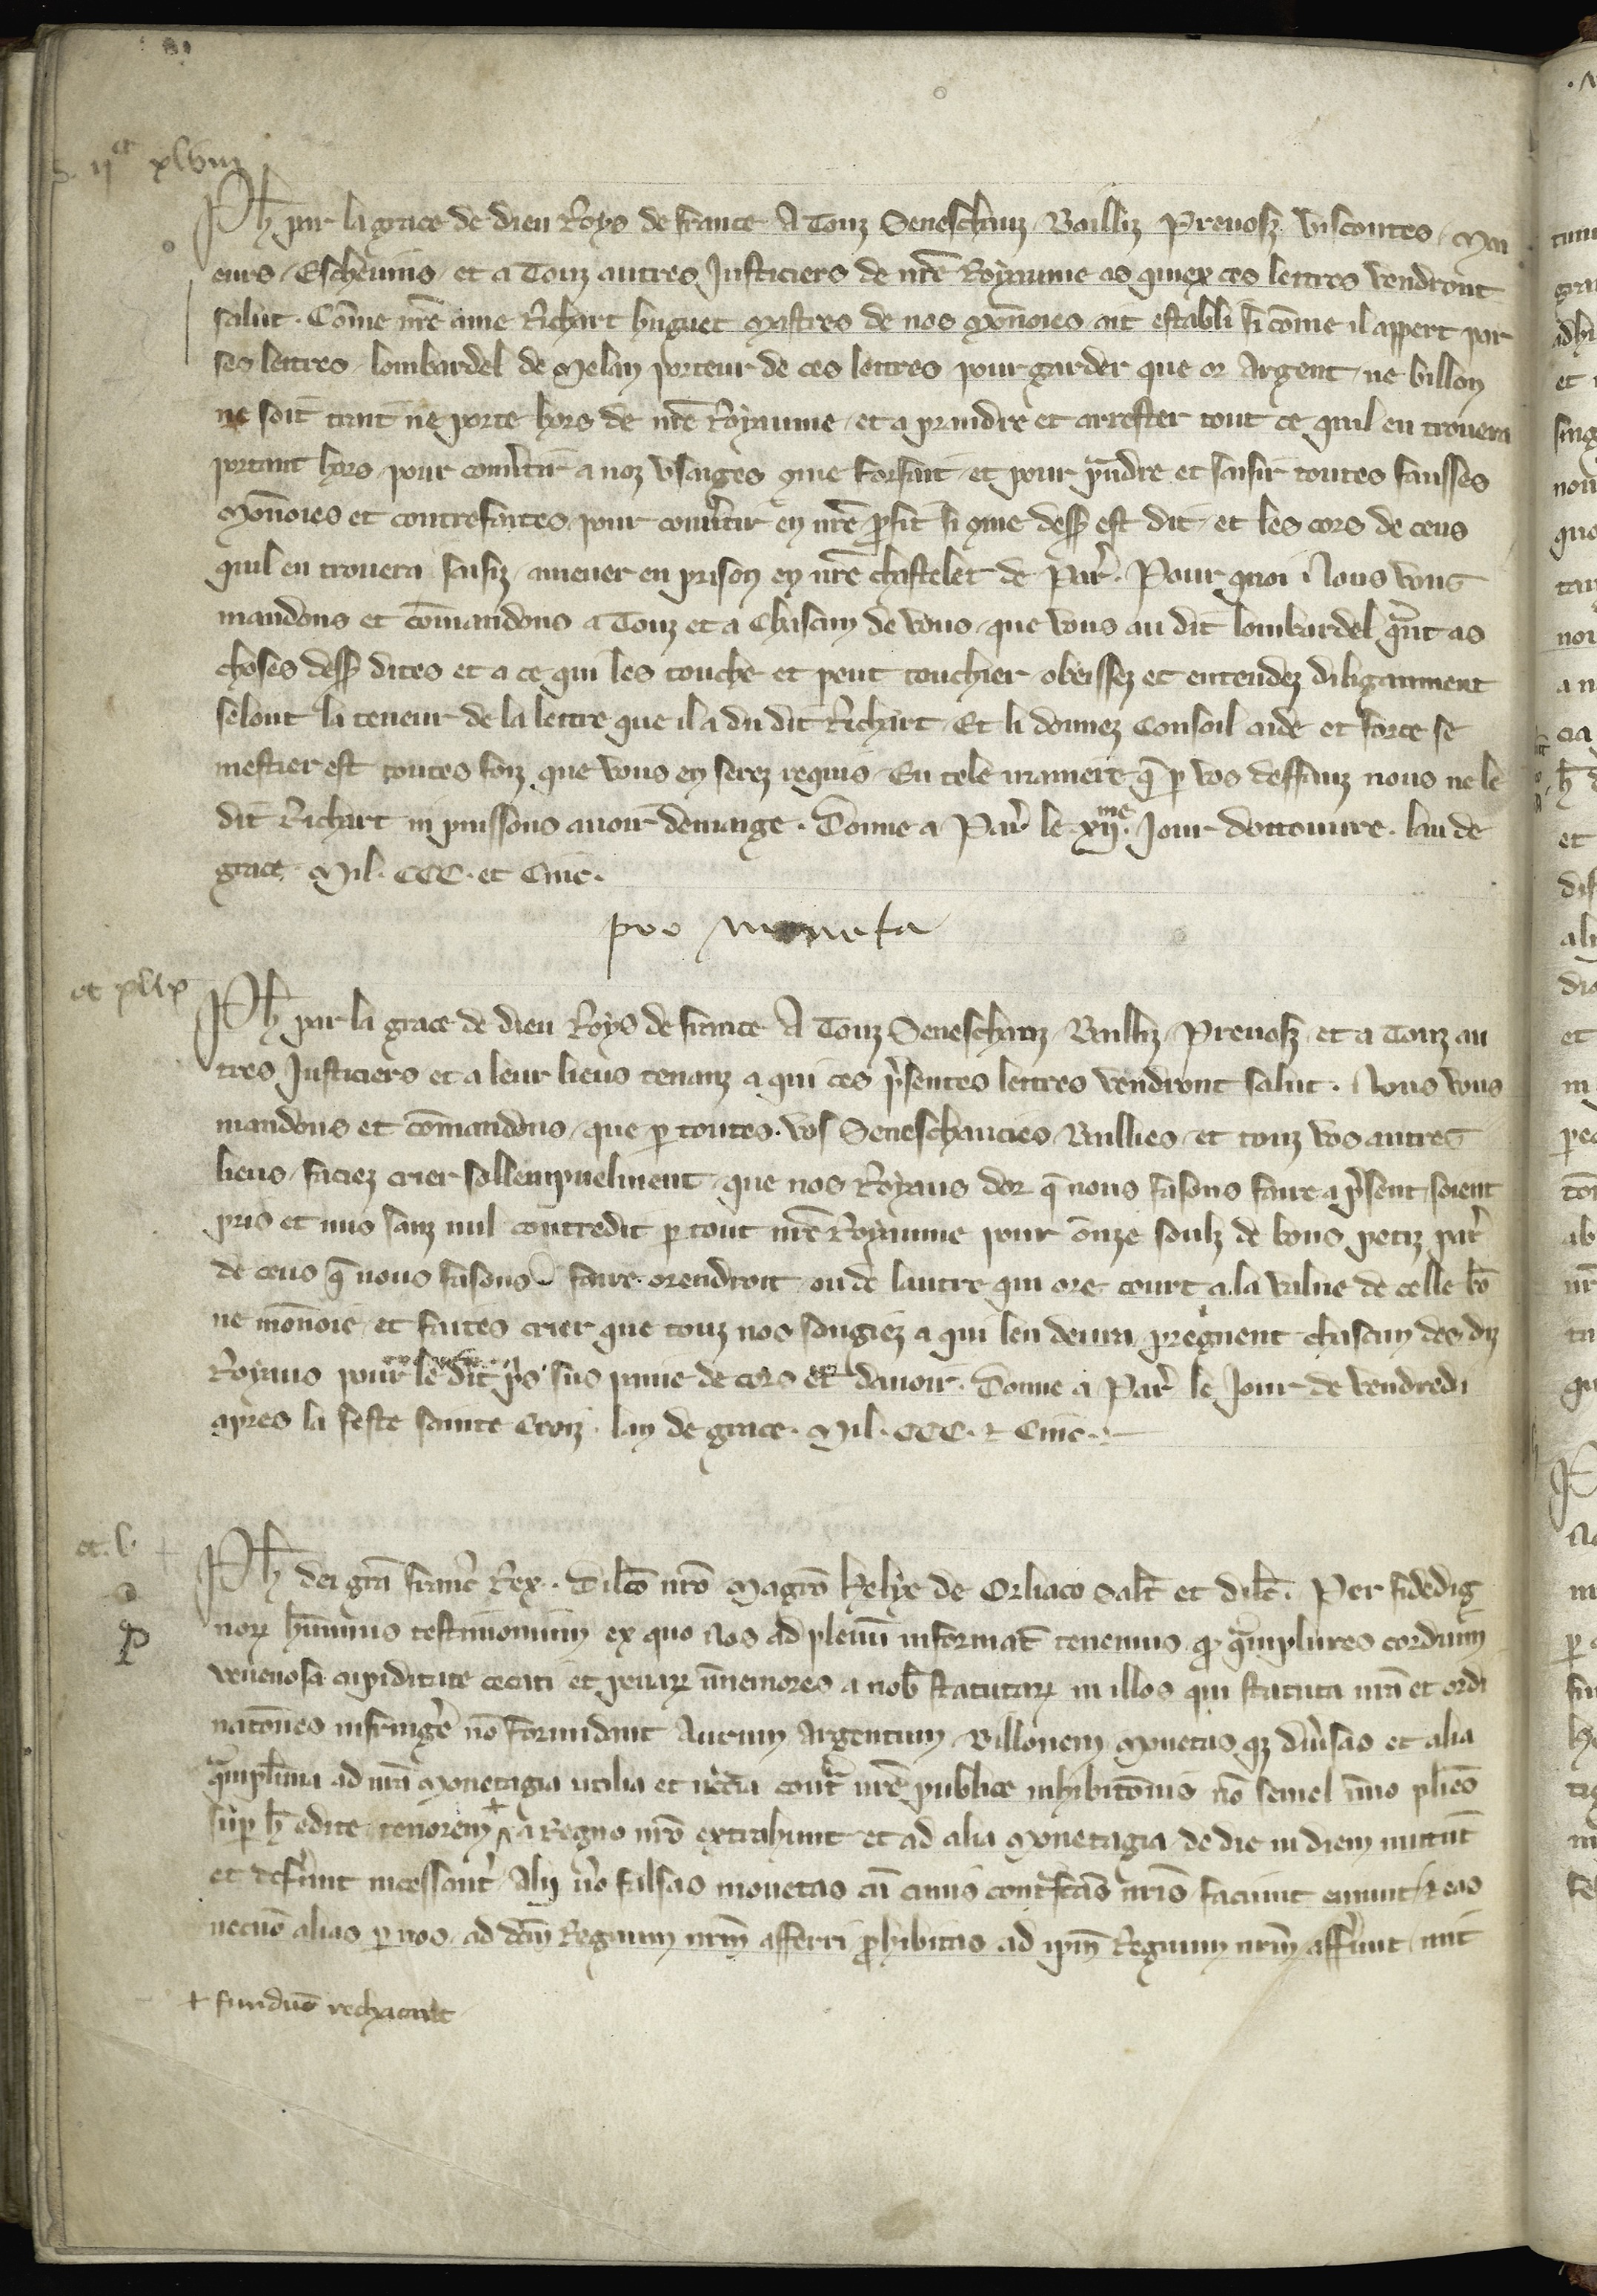 ijct xlviij
Ph par la grace de dieu Roys de france A Touz Seneschauz Bailliz Prevosz viscontes Mai
eurs Eschevins et a Touz autres Justiciers de nrē Royaume as quiex ces lettres vendront
salut. Cōme nrē ame Richart huguet mestres de nos Mōnoies ait establi si cōme il appert par
ses lettres lombardel de Melan porteur de ces lettres pour garder que or Argent ne billon
ne soit trait ne porte hors de nrē Royaume et a prandre et arrester tout ce quil en trouvera
portant hors pour convtir a noz usaiges cōme forfait et pour prandre et saisir toutes fausses
Mōnoies et contrefaites pour convtir en nrē profit si cōme dess est dit et les cors de ceus
quil en trouvera saisiz amener en prison en nrē chastelet de Par. Pour quoi Nous vous
mandons et cōmandons a Touz et a Chascun de vous que vous au dit lombardel quant as
choses dess dites et a ce qui les touche et peut touchier obeissez et entendez diligaument
selont la teneur de la lettre que il a du dit Richart Et li donnez Consoil aide et force se
mestier est toutes foiz que vous en serez requis En tele maniere q̄ p vos deffauz nous ne le
dit Richart ni puissons avoir demaige. Donne a Par le xijme. Jour dottouvre. lan de
grace Mil. CCC. et Cinc.
pro moneta
ct xlix
Ph par la grace de dieu Roys de france A Touz Seneschauz Bailliz Prevosz et a Touz au
tres Justiciers et a leur lieus tenanz a qui ces psentes lettres vendront salut. Nous vous
mandons et cōmandons que p toutes vos Seneschaucies Baillies et touz vos autres
lieus faciez crier sollempnelment que nos Royaus dor q̄ nous fasons faire a psent soient
pris et mis sanz nul contredit p tout nrē Royaume pour onze soulz de bons petiz par
de ceus q̄ nous fasons faire orendroit ou de lautre qui ore court a la value de celle bō
ne mōnoie et faites crier que touz nos sougiez a qui len devra pregnent chascun des diz
Royaus pour le dit pris sus paine de cors et davoir. Donne a Par le Jour de vendredi
apres la feste sainte Croiz lan de grace. Mil. CCC. et Cinc.
ct. l
Ph dei grā franc Rex. Dilcō nrō Magrō helye de Orliaco salt et dilc. Per fidedig
nor hominus testimonium ex quo nos ad plenū informat tenemus q quamplures cordium
venenosa cupiditate cecati et penar immemores a nob statutar in illos qui statuta nrā et ordi
natōnes infringere nō formidant Aurum Argentum Billonem Monetas q diversas et alia
quamplima ad nrā Monetagia utilia et nccia contra nrē publice inhibitōnis nō semel immo pliēs
sup h edite tenorem + a Regno nrō extrahunt et ad alia Monetagia de die in diem mittūt
et deferunt incessant Alij vo falsas monetas cū cunis contrafctis nris faciunt emunt et eas
necnō alias p nos ad dcm Regnum nrm afferri prohibitas ad ipm Regnum nrm afferunt mit
+ fundūt rechaciat